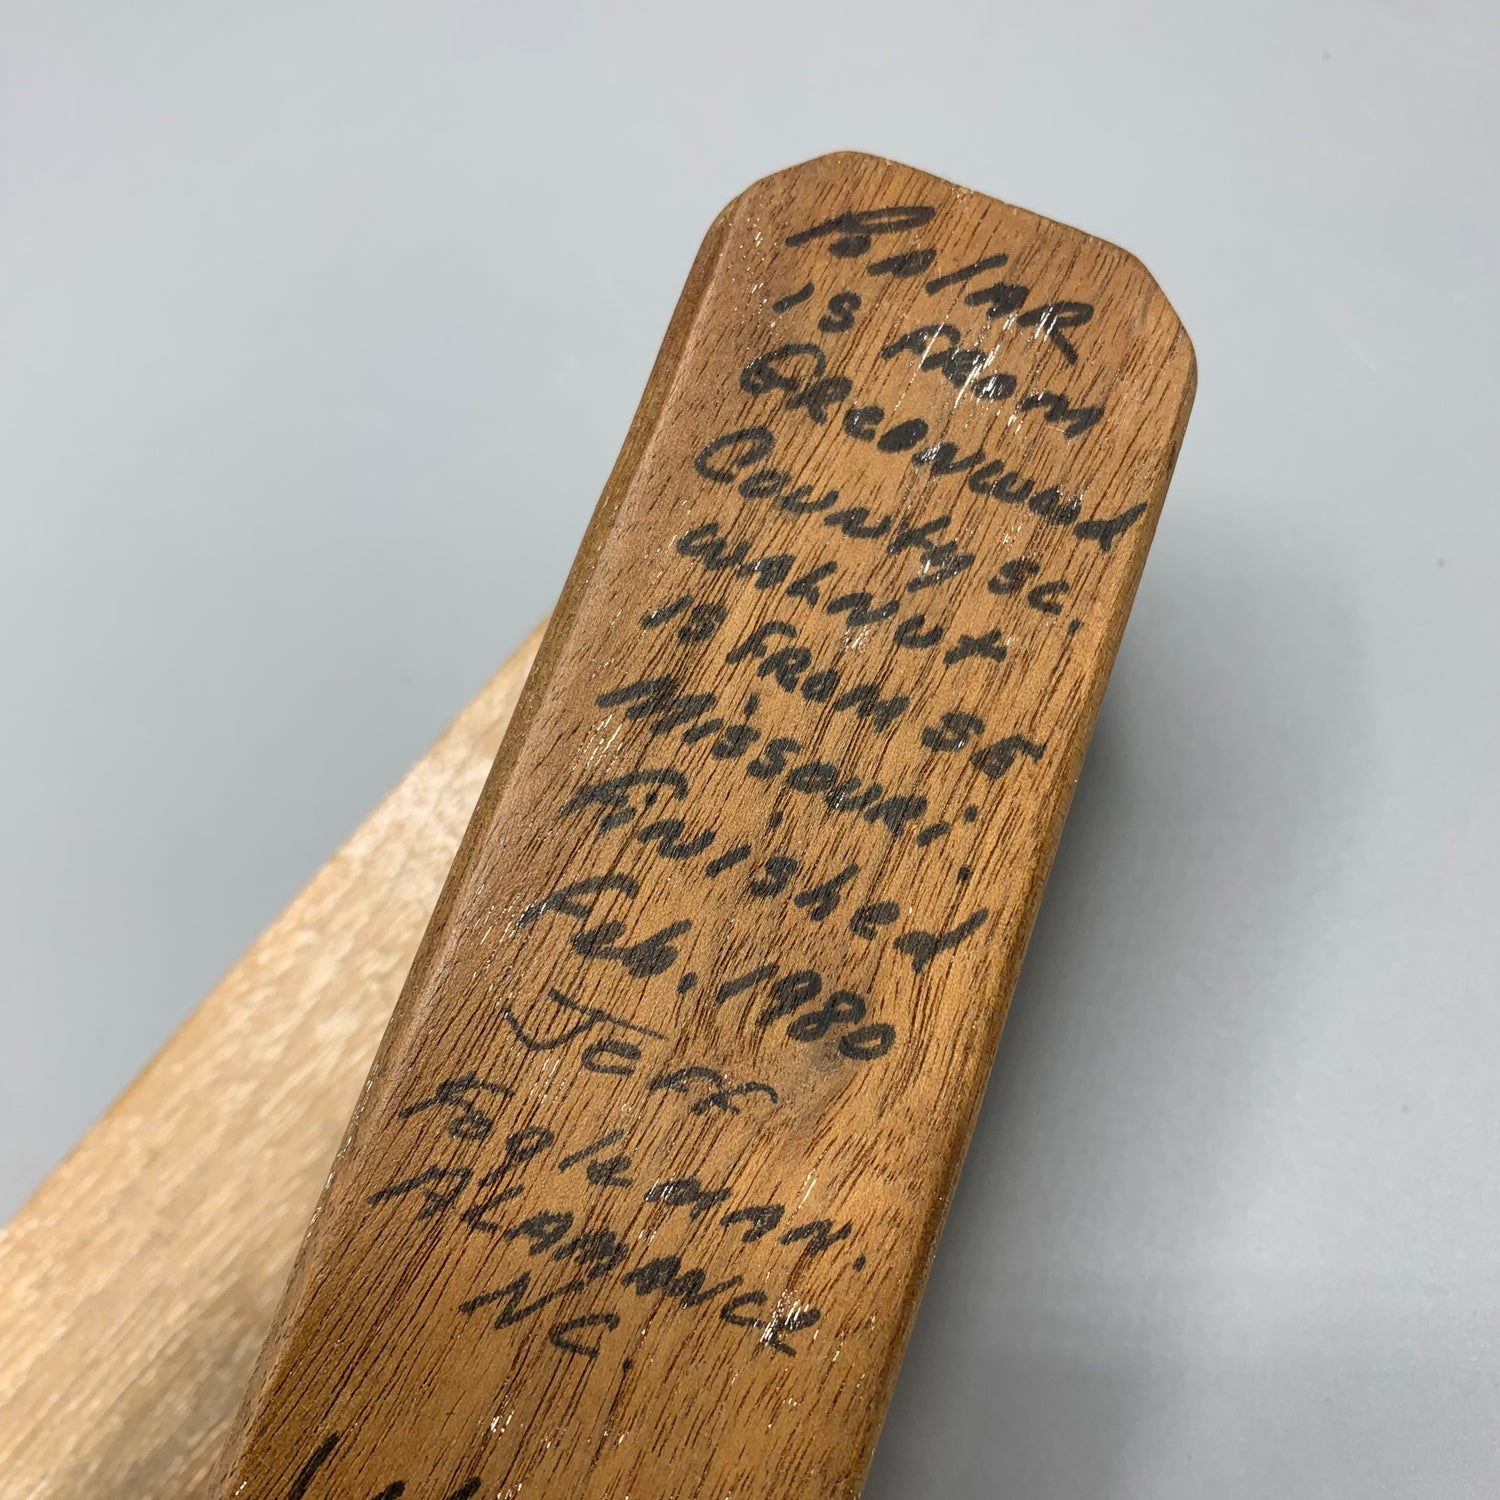 Poplar
is from
Greenwood
County SC.
Walnut
is from SE
Missouri.
Finished
Feb. 1980
Jeff
Fogleman.
Alamance
NC.